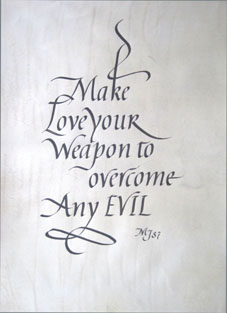 Make
Love Your
Weapon to
overcome
Any EVIL